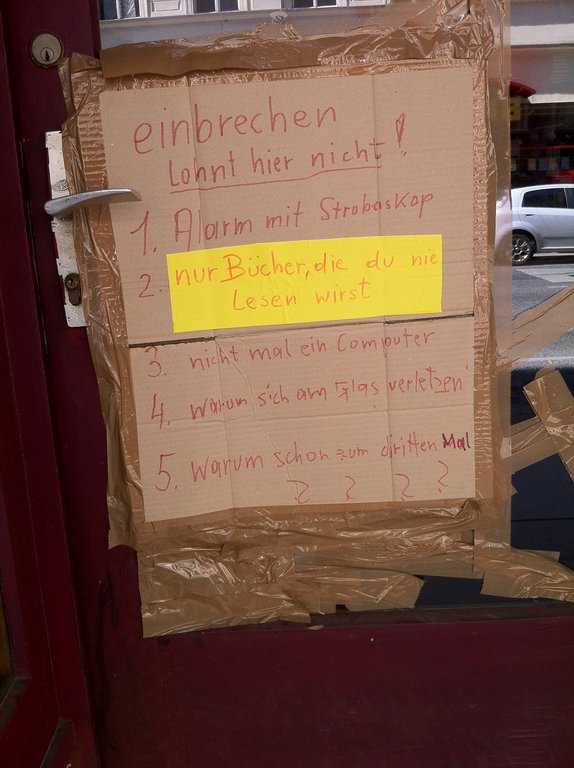 einbrechen
Lohnt hier nicht!
1. Alarm mit Stroboskop
2. nur Bücher, die du nie
Lesen wirst
3. nicht mal ein Computer
4. Warum sich am Glas verletzen
5. Warum schon zum dritten Mal
? ? ? ?